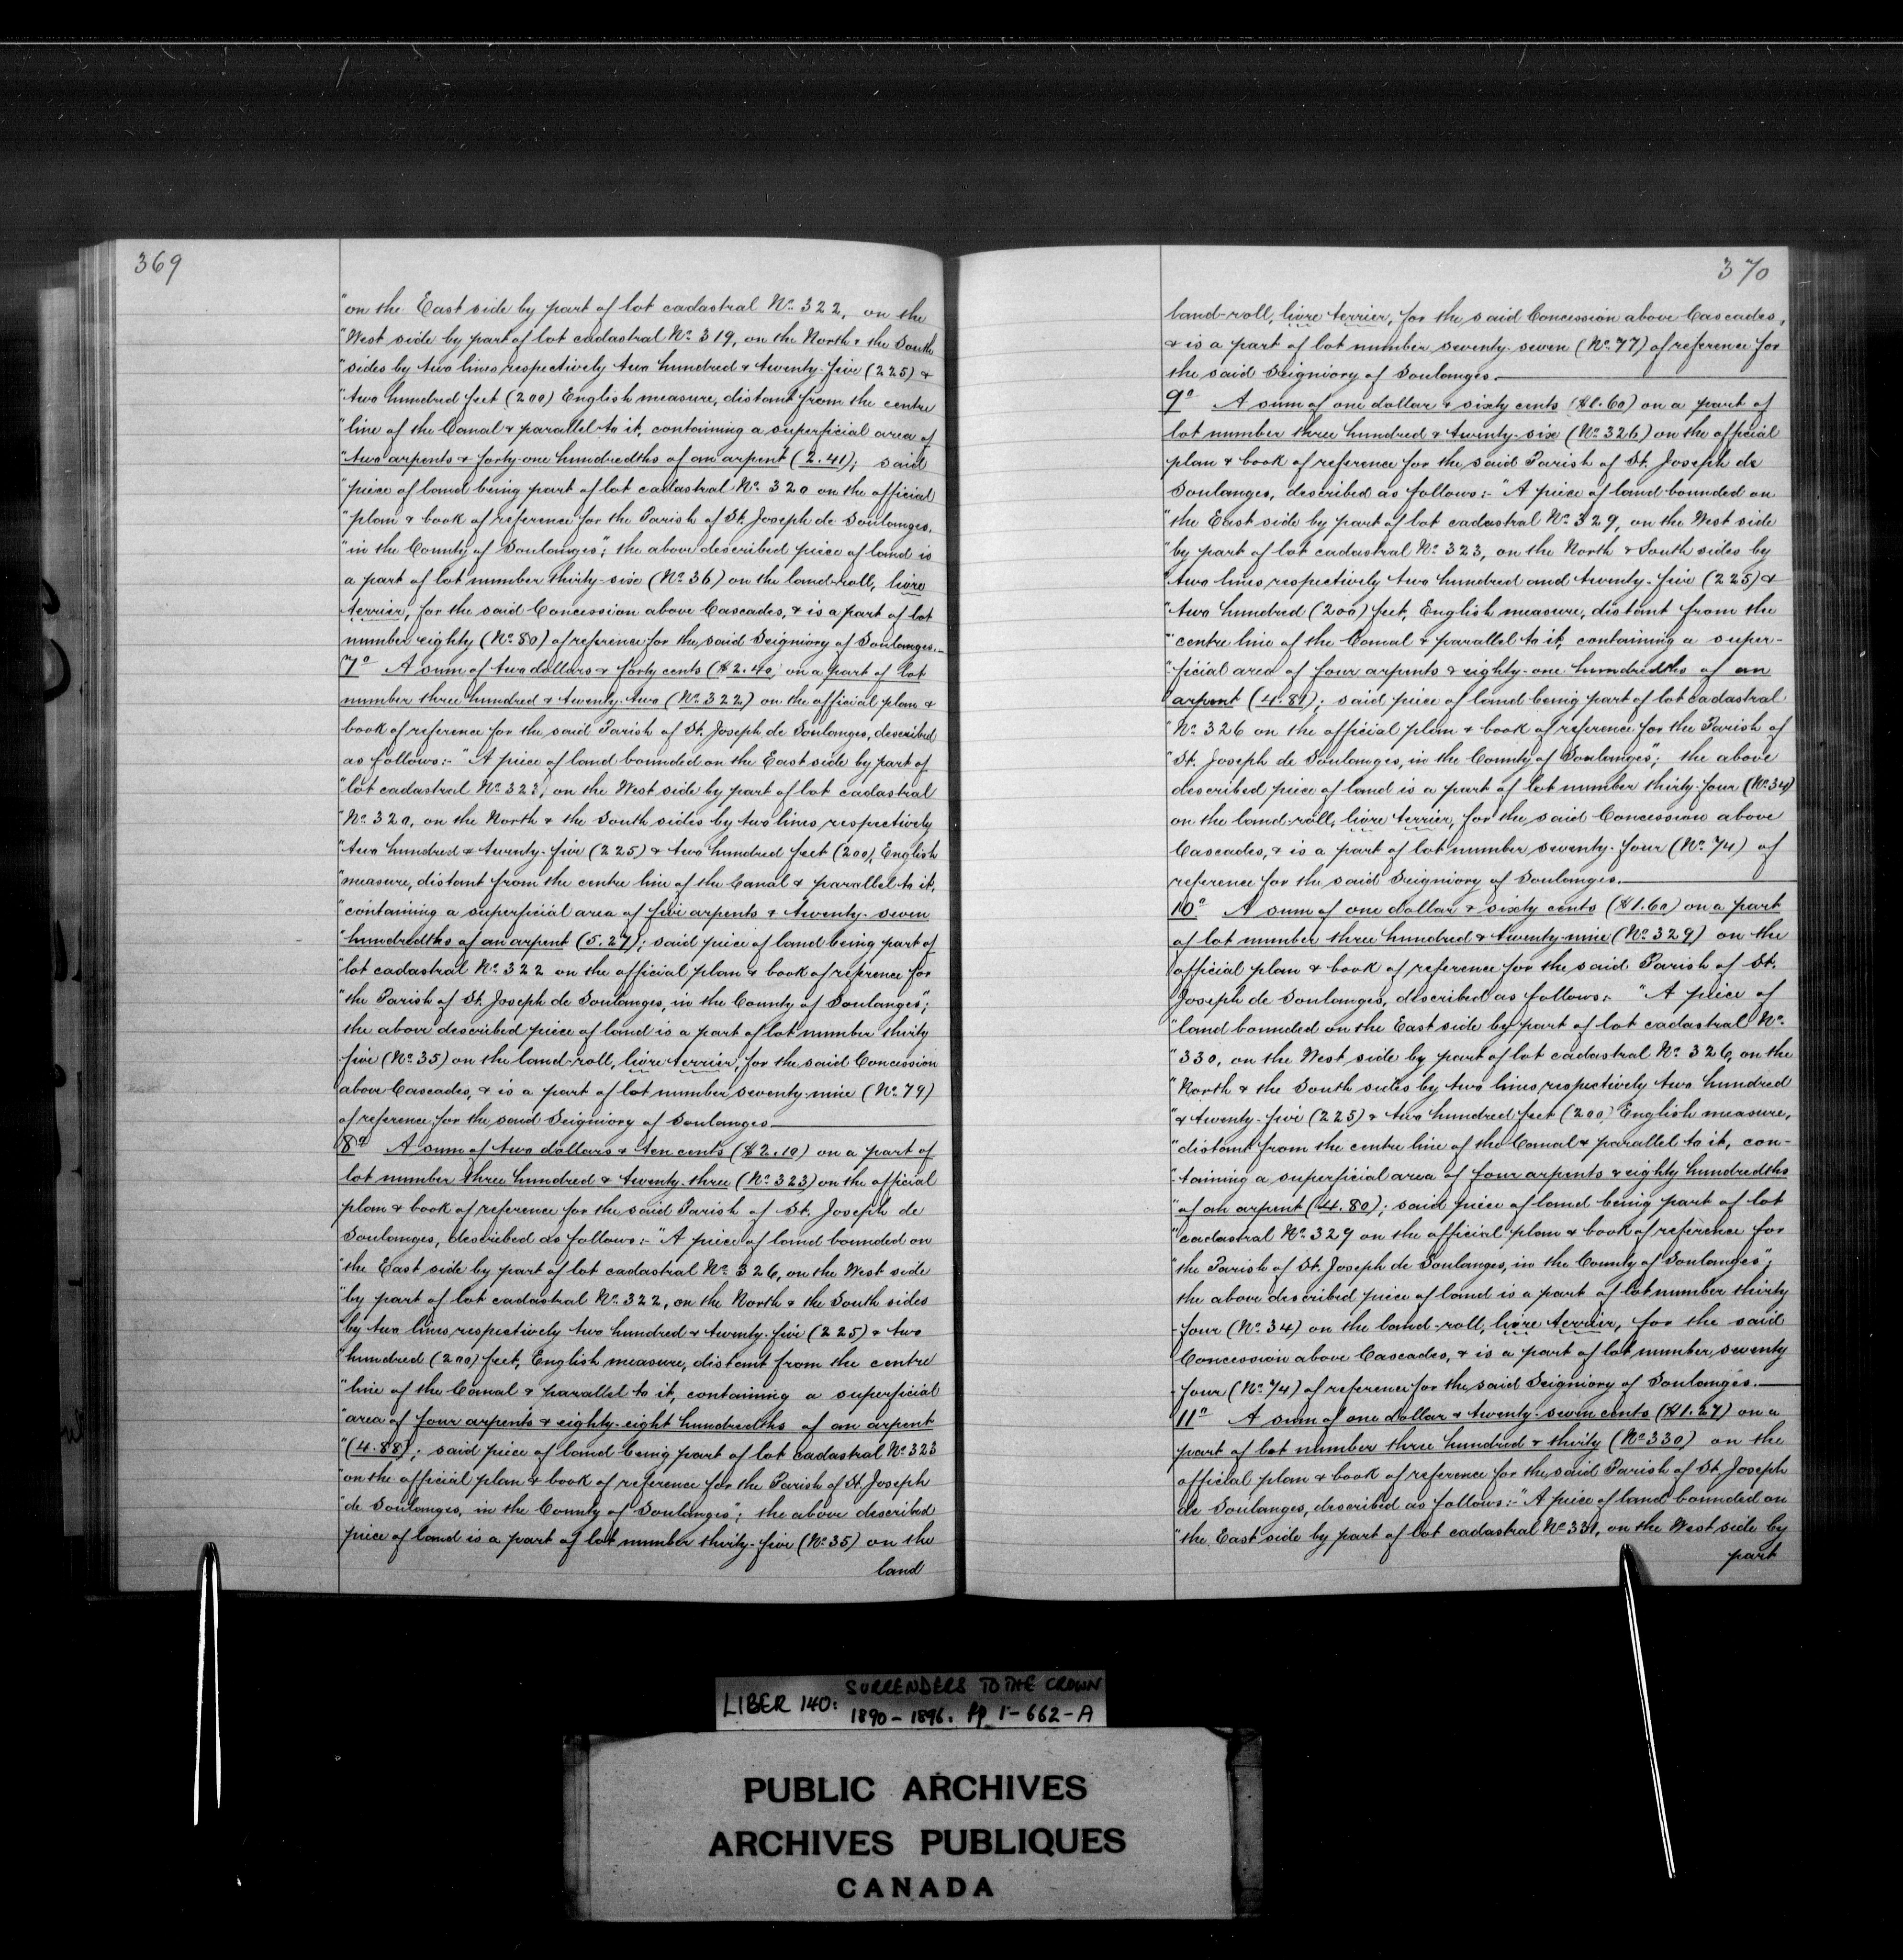 369
"on the East side by part of lot cadastral No. 322, on the
"West side by part of lot cadastral No. 319, on the North & the South
"sides by two lines respectively two hundred & twenty-five (225) &
"two hundred feet (200) English measure, distant from the centre
"line of the Canal & parallel to it, containing a superficial area of
"two arpents & forty-one hundredths of an arpent (2.41); said
"piece of land being part of lot cadastral No. 320 on the official
"plan & book of reference for the Parish of St. Joseph de Soulanges,
"in the County of Soulanges"; the above described piece of land is
a part of lot number thirty-six (No. 36) on the land-roll, livre
terrier, for the said Concession above Cascades, & is a part of lot
number eighty (No. 80) of reference for the said Seigniory of Soulanges.
7o A sum of two dollars & forty cents ($2.40) on a part of lot
number three hundred & twenty-two (No. 322) on the official plan &
book of reference for the said Parish of St. Joseph de Soulanges, described
as follows:- "A piece of land bounded on the East side by part of
"lot cadastral No. 323, on the West side by part of lot cadastral
"No. 320, on the North & the South sides by two lines respectively
"two hundred & twenty-five (225) & two hundred feet (200), English
"measure, distant from the centre line of the Canal & parallel to it,
"containing a superficial area of five arpents & twenty-seven
"hundredths of an arpent (5.27); said piece of land being part of
"lot cadastral No. 322 on the official plan & book of reference for
"the Parish of St. Joseph de Soulanges, in the County of Soulanges";
the above described piece of land is a part of lot number thirty
-five (No. 35) on the land-roll, livre terrier, for the said Concession
above Cascades, & is a part of lot number seventy-nine (No. 79)
of reference for the said Seigniory of Soulanges
8o A sum of two dollars & ten cents ($2.10) on a part of
lot number three hundred & twenty-three (No. 323) on the official
plan & book of reference for the said Parish of St. Joseph de
Soulanges, described as follows:- "A piece of land bounded on
"the East side by part of lot cadastral No. 326, on the West side
"by part of lot cadastral No. 322, on the North & the South sides
"by two lines respectively two hundred & twenty-five (225) & two
"hundred (200) feet, English measure, distant from the centre
"line of the Canal & parallel to it, containing a superficial
"area of four arpents & eighty-eight hundredths of an arpent
"(4.88); said piece of land being part of lot cadastral No. 323
"on the official plan & book of reference for the Parish of St. Joseph
"de Soulanges, in the County of Soulanges"; the above described
piece of land is a part of lot number thirty-five (No. 35) on the
land
370
land-roll, livre terrier, for the said Concession above Cascades,
& is a part of lot number seventy-seven (No. 77) of reference for
the said Seigniory of Soulanges.
9o A sum of one dollar & sixty cents ($1.60) on a part of
lot number three hundred & twenty-six (No. 326) on the official
plan & book of reference for the said Parish of St. Joseph de
Soulanges, described as follows:- "A piece of land bounded on
"the East side by part of lot cadastral No. 329, on the West side
"by part of lot cadastral No. 323, on the North & South sides by
"two lines respectively two hundred and twenty-five (225) &
"two hundred (200) feet, English measure, distant from the
"centre line of the Canal & parallel to it, containing a super-
"ficial area of four arpents & eighty-one hundredths of an
"arpent (4.81); said piece of land being part of lot cadastral
"No. 326 on the official plan & book of reference for the Parish of
"St. Joseph de Soulanges, in the County of Soulanges"; the above
described piece of land is a part of lot number thirty-four (No. 34)
on the land-roll, livre terrier, for the said Concession above
Cascades, & is a part of lot number seventy-four (No. 74) of
reference for the said Seigniory of Soulanges.
10o A sum of one dollar & sixty cents ($1.60) on a part
of lot number three hundred & twenty-nine (No. 329) on the
official plan & book of reference for the said Parish of St.
Joseph de Soulanges, described as follows:- "A piece of
"land bounded on the East side by part of lot cadastral No.
"330, on the West side by part of lot cadastral No. 326, on the
"North & the South sides by two lines respectively two hundred
"& twenty-five (225) & two hundred feet (200) English measure,
"distant from the centre line of the Canal & parallel to it, con-
"taining a superficial area of four arpents & eighty hundredths
"of an arpent (4.80); said piece of land being part of lot
"cadastral No. 329 on the official plan & book of reference for
"the Parish of St. Joseph de Soulanges, in the County of Soulanges";
the above described piece of land is a part of lot number thirty
-four (No. 34) on the land-roll, livre terrier, for the said
Concession above Cascades, & is a part of lot number seventy
-four (No. 74) of reference for the said Seigniory of Soulanges.
11o A sum of one dollar & twenty-seven cents ($1.27) on a
part of lot number three hundred & thirty (No. 330) on the
official plan & book of reference for the said Parish of St. Joseph
de Soulanges, described as follows:- "A piece of land bounded on
"the East side by part of lot cadastral No. 331, on the West side by
part
LIBER 140: SURRENDERS TO THE CROWN
1890-1896. pp 1-662-A
PUBLIC ARCHIVES
ARCHIVES PUBLIQUES
CANADA